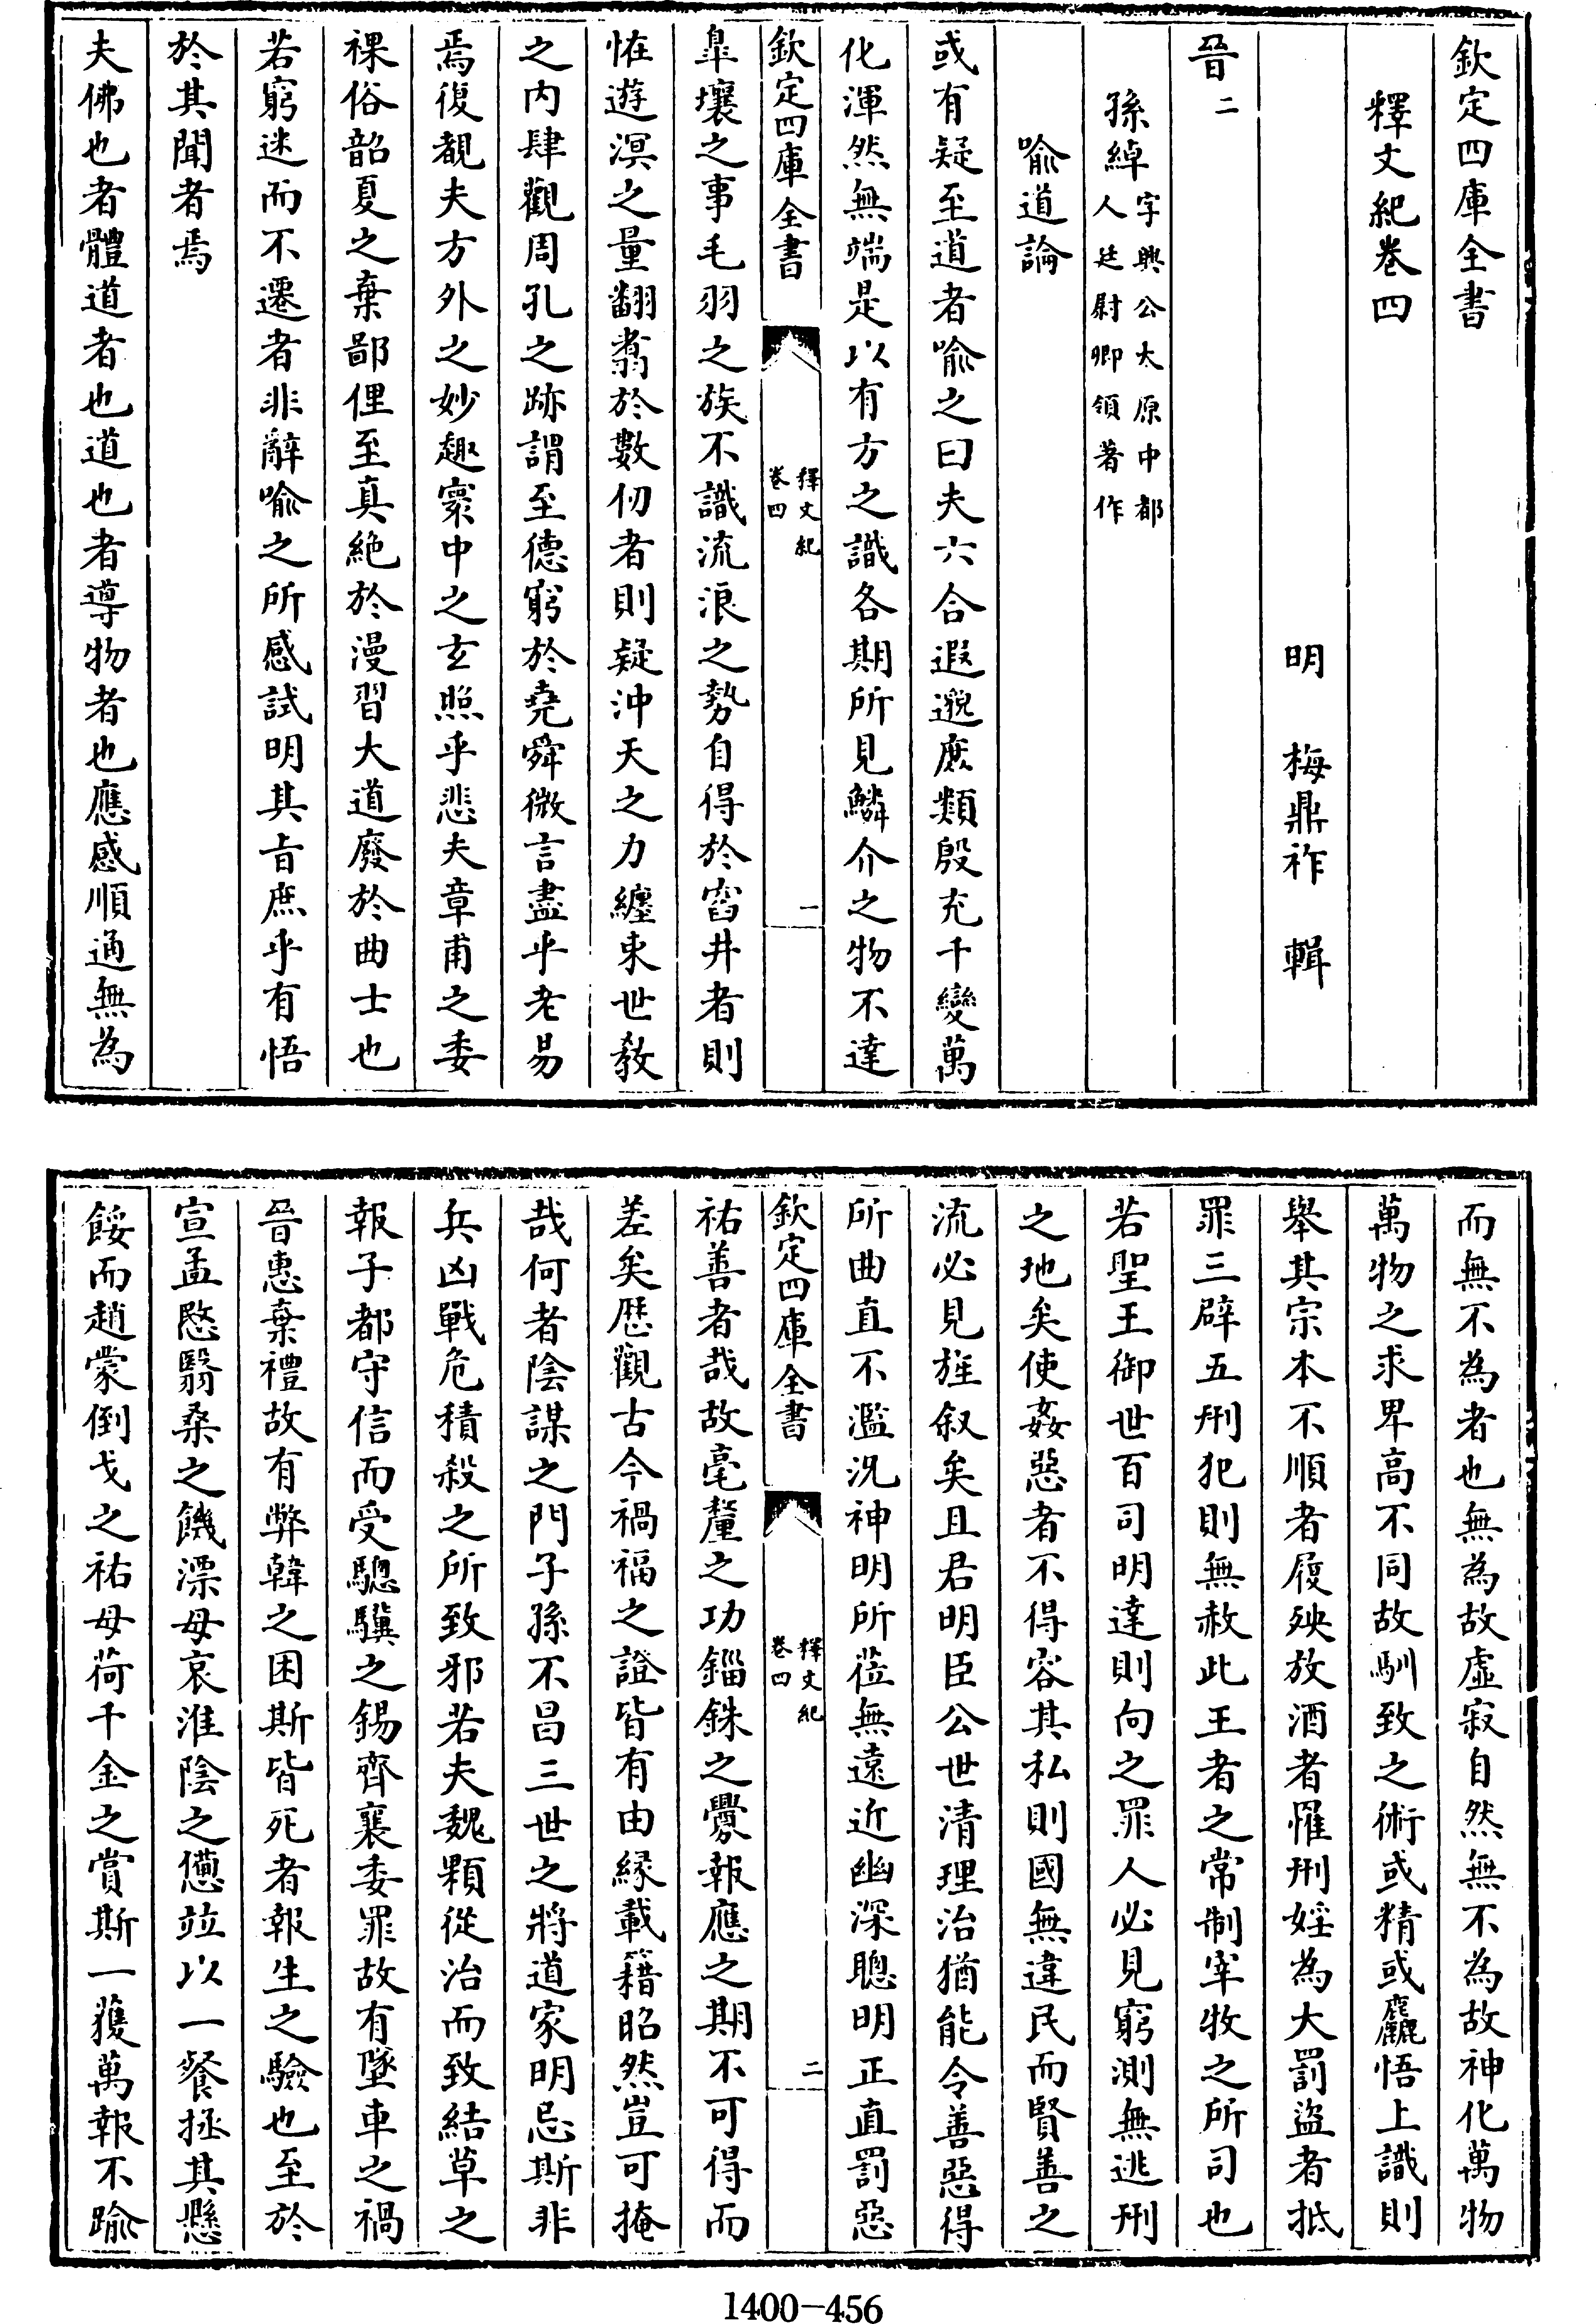 欽定四庫全書
釋文紀卷四
明 梅鼎祚 輯
晉二
孫綽字興公太原中都人廷尉卿領著作
喻道論
或有疑至道者喻之曰夫六合遐邈庶類殷充千變萬
化渾然無端是以有方之識各期所見鱗介之物不達
欽定四庫全書 釋文紀卷四 一
臯壤之事毛羽之族不識流浪之勢自得於窞井者則
恠遊溟之量翻翥於數仞者則疑沖天之力纏束世教
之内肆觀周孔之跡謂至德窮於堯舜微言盡乎老易
焉復覩夫方外之妙趣寰中之玄照乎悲夫章甫之委
裸俗韶夏之棄鄙俚至真絶於漫習大道廢於曲士也
若窮迷而不遷者非辭喻之所感試明其旨庶乎有悟
於其聞者焉
夫佛也者體道者也道也者導物者也應感順通無為
而無不為者也無為故虛寂自然無不為故神化萬物
萬物之求卑高不同故馴致之術或精或麤悟上識則
舉其宗本不順者履殃放酒者罹刑婬為大罰盜者抵
罪三辟五刑犯則無赦此王者之常制宰牧之所司也
若聖王御世百司明達則向之罪人必見窮測無逃刑
之地矣使姦惡者不得容其私則國無違民而賢善之
流必見旌叙矣且君明臣公世清理治猶能令善惡得
所曲直不濫况神明所莅無遠近幽深聰明正直罰惡
欽定四庫全書 釋文紀卷四 二
祐善者哉故毫釐之功錙銖之釁報應之期不可得而
差矣歴觀古今禍福之證皆有由緣載籍昭然豈可掩
哉何者陰謀之門子孫不昌三世之將道家明忌斯非
兵凶戰危積殺之所致邪若夫魏顆從治而致結草之
報子都守信而受驄驥之錫齊襄委罪故有墜車之禍
晉惠棄禮故有弊韓之困斯皆死者報生之驗也至於
宣孟愍翳桑之饑漂母哀淮陰之憊竝以一餐拯其懸
餒而趙蒙倒戈之祐母荷千金之賞斯一獲萬報不踰
1400—456